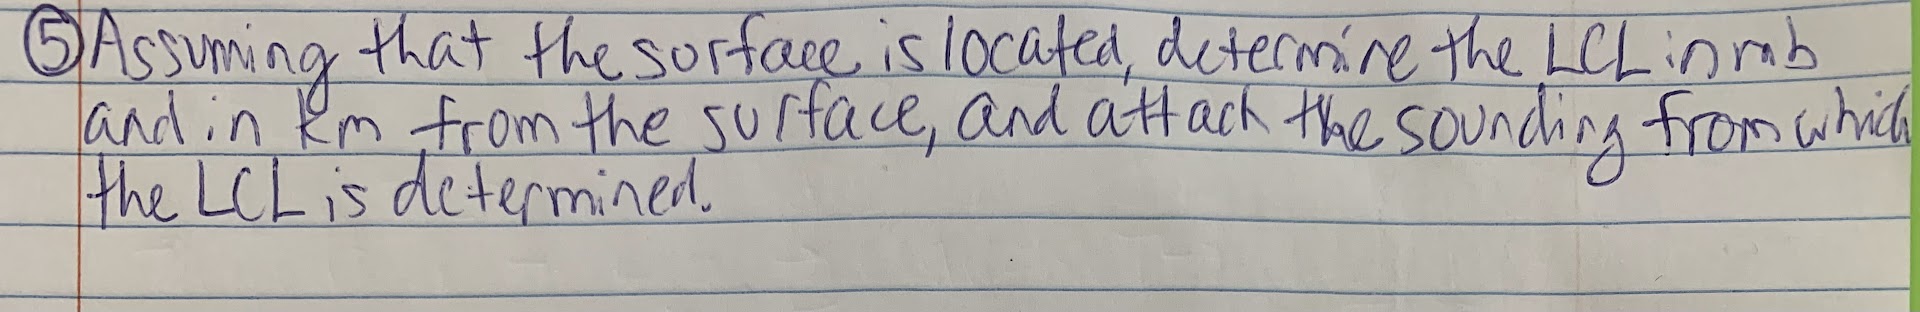 ⑤ Assuming that the surface is located, determine the LCL in mb
and in km from the surface, and attach the sounding from which
the LCL is determined.